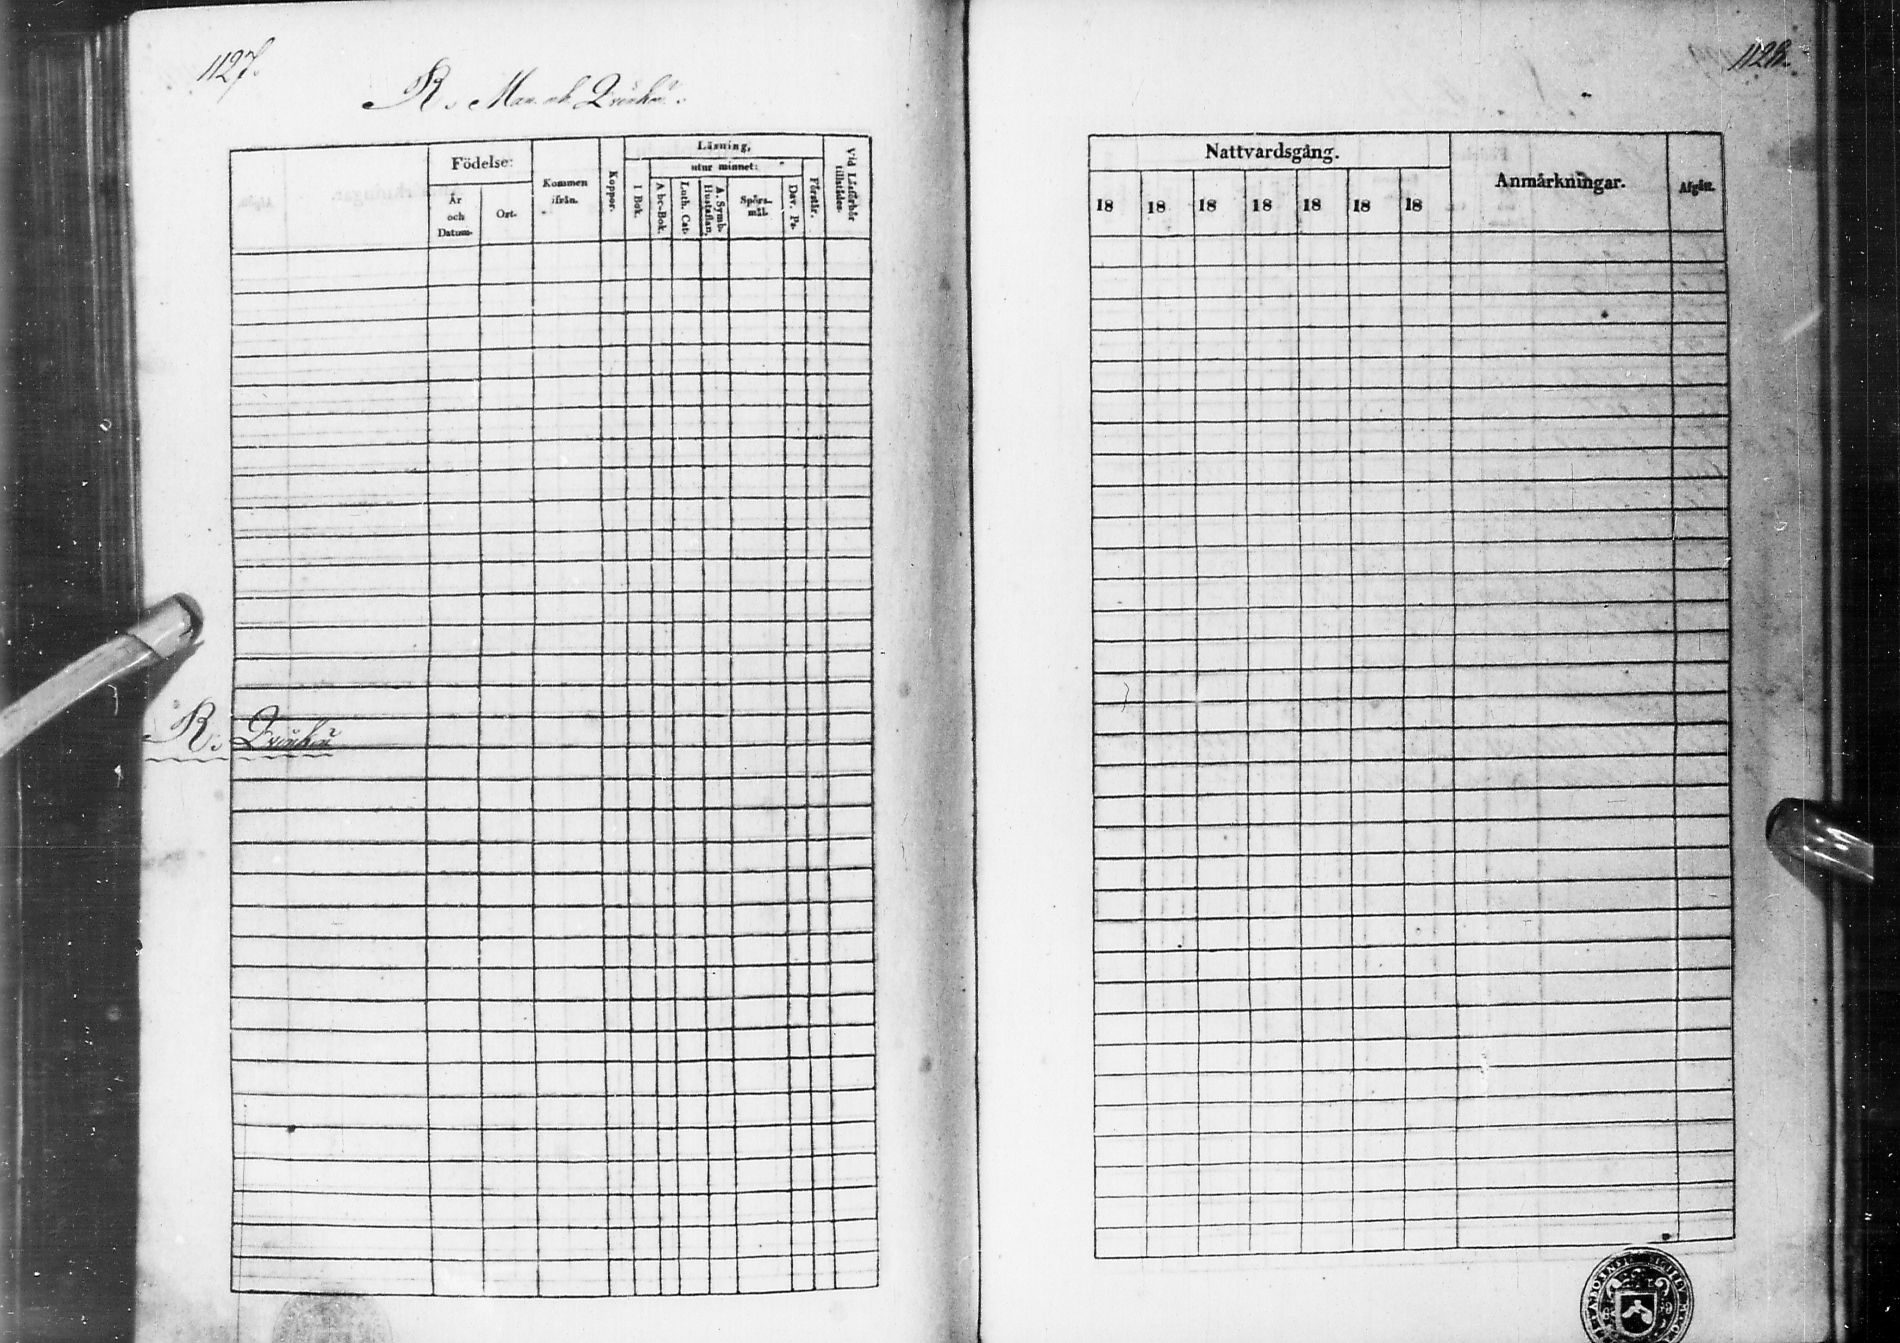 1127.
R. Man. och Qvinkön.
Födelse:
År och Datum.
Ort.
Kommen ifrån.
Koppor.
Läsning,
utur minnet:
I Bok.
Abc-Bok.
Luth. Cat.
A. Symb. Hustaflan.
Spörsmål.
Dav. Ps.
Förstår.
Vid Läsförhör tillstädes.
R. Qvinkön
1128.
Nattvardsgång.
18 18 18 18 18 18 18
Anmärkningar.
Afgått.